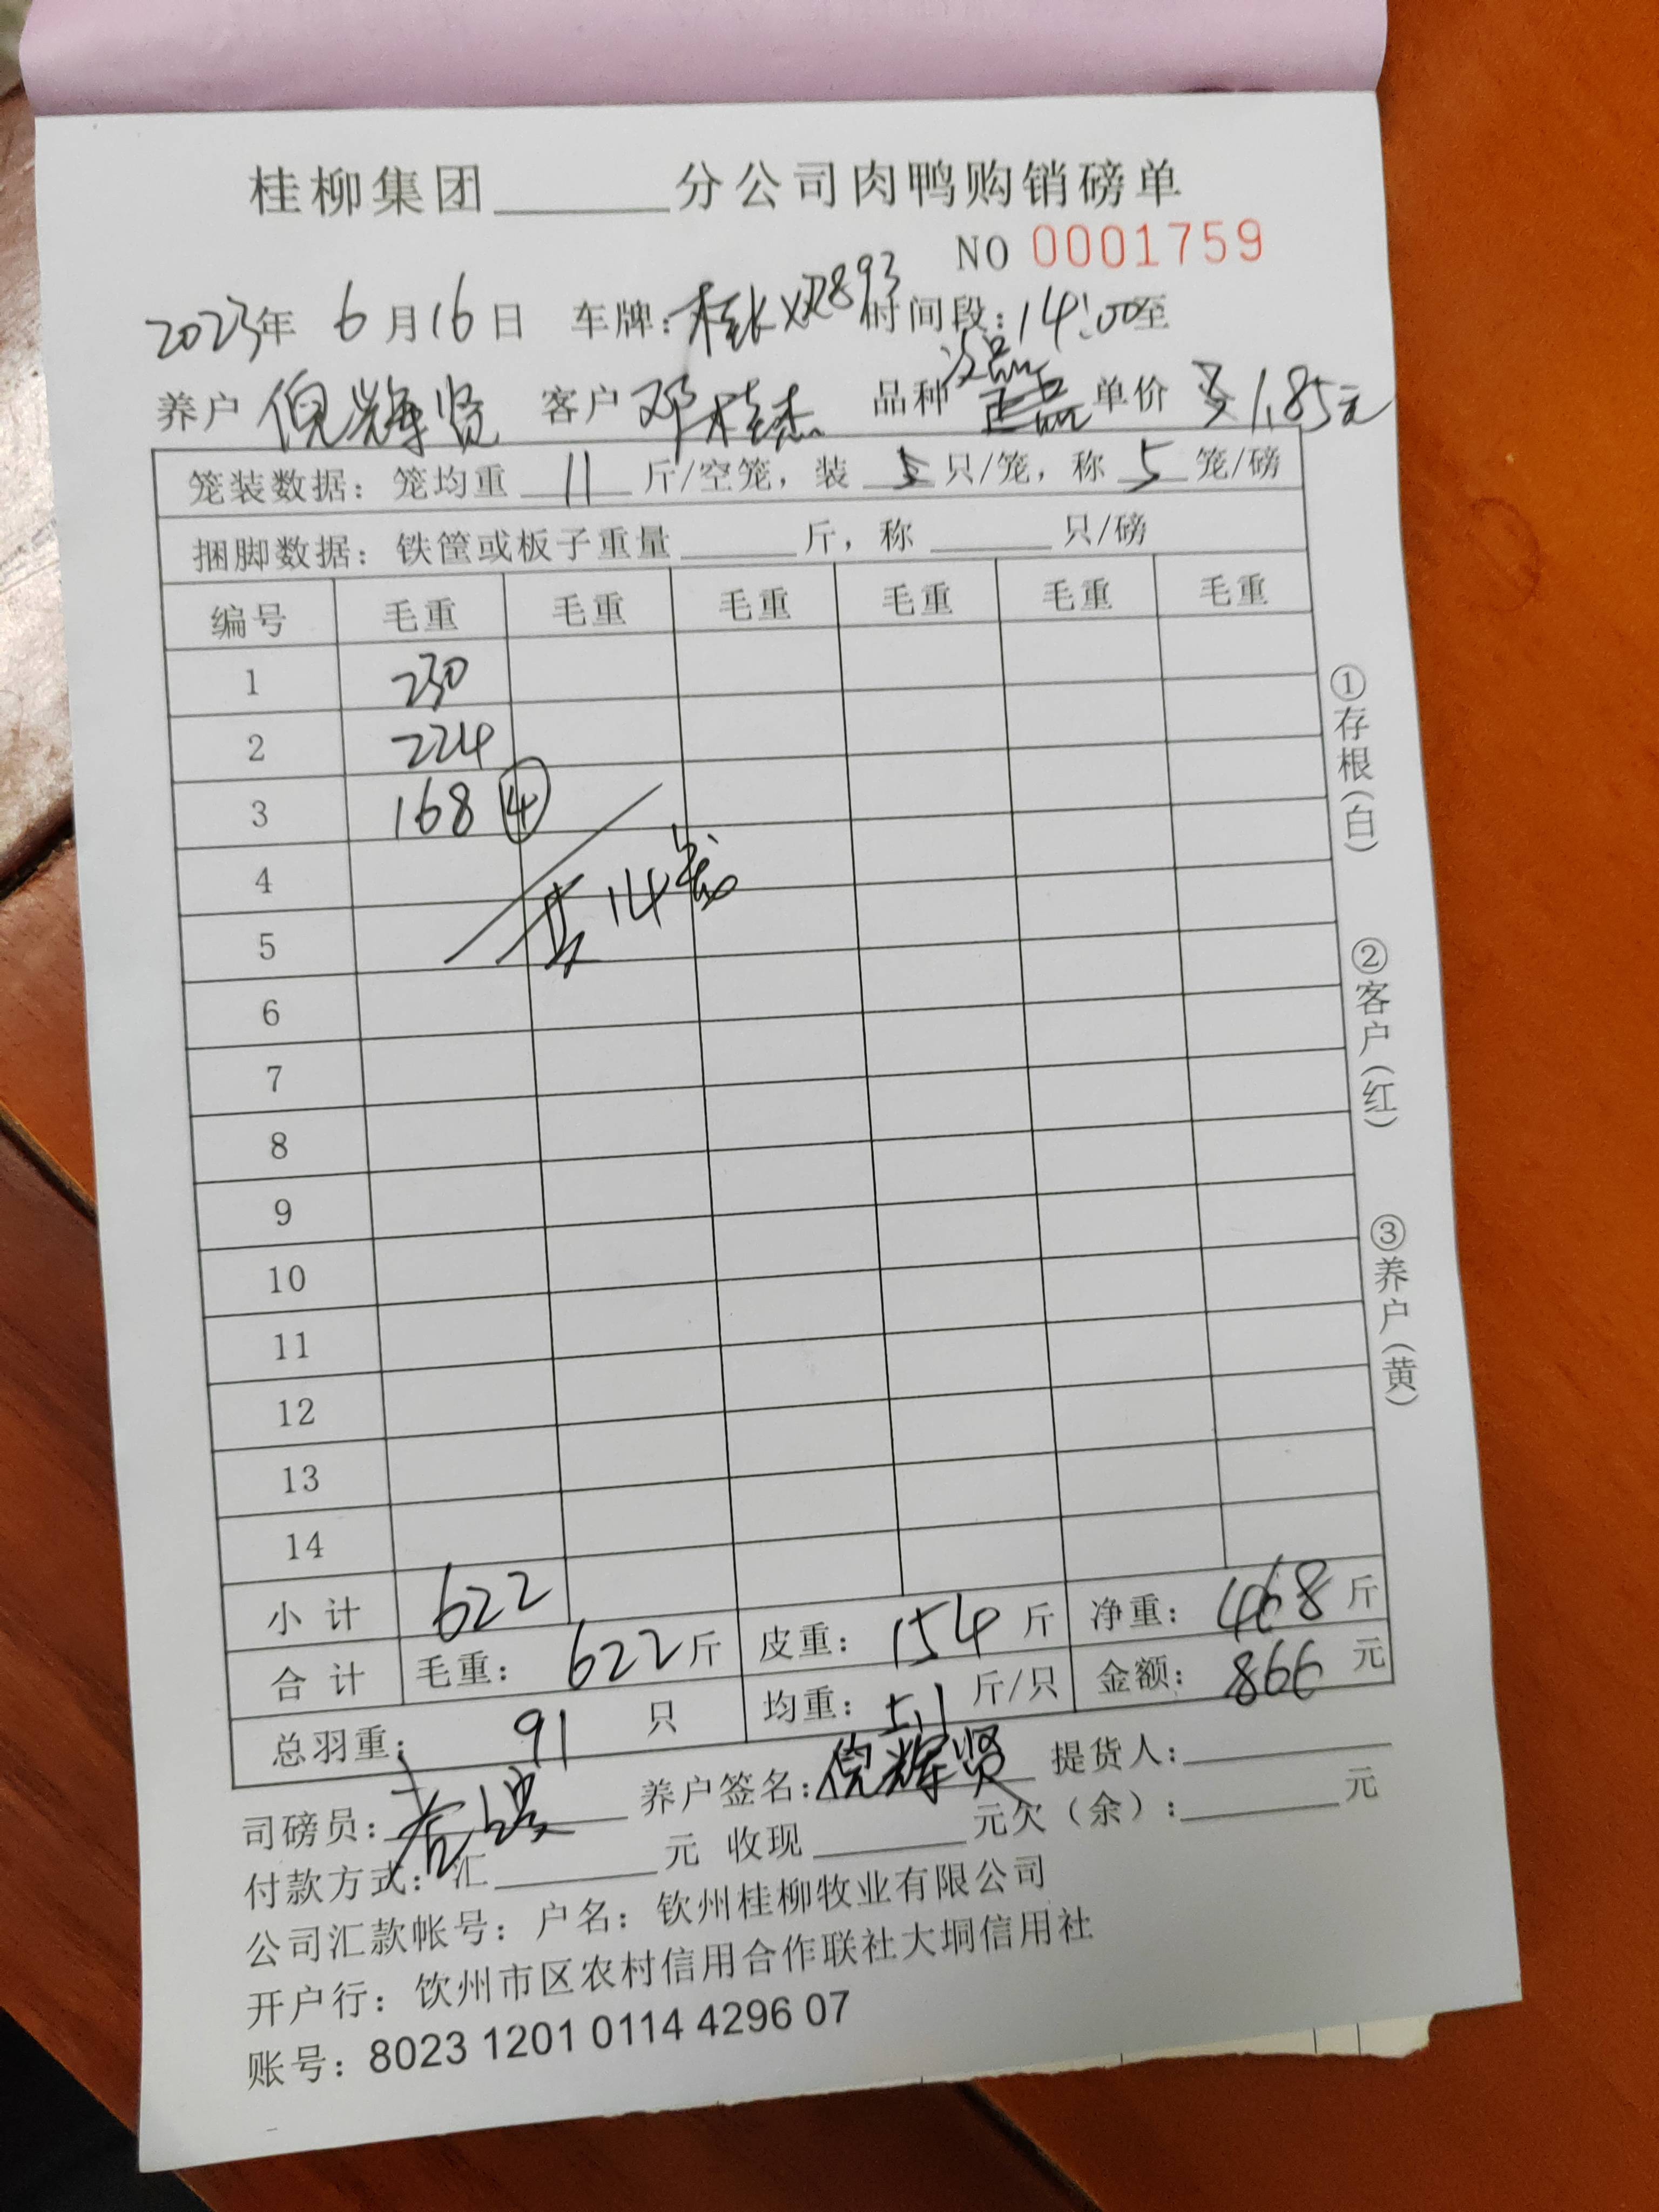 桂柳集团______分公司肉鸭购销磅单
NO 0001759
2023年 6月16日 车牌: 时间段:14:00至
养户 倪辉贤 客户 邓桂杰 品种 正品 单价 1.85元
笼装数据: 笼均重 11 斤/空笼, 装 只/笼, 称 5 笼/磅
捆脚数据: 铁筐或板子重量______斤, 称______只/磅
编号 毛重 毛重 毛重 毛重 毛重 毛重
1 230
2 224
3 168 ④
4
共14笼
5
6
7
8
9
10
11
12
13
14
小计 622
合计 毛重: 622斤 皮重: 154 斤 净重: 468 斤
总羽重: 91 只 均重: 5.1 斤/只 金额: 866 元
司磅员: 养户签名: 倪辉贤 提货人:______
付款方式: 汇______元 收现______元欠(余):______元
公司汇款帐号: 户名: 钦州桂柳牧业有限公司
开户行: 饮州市区农村信用合作联社大垌信用社
账号: 8023 1201 0114 4296 07
①存根(白)
②客户(红)
③养户(黄)